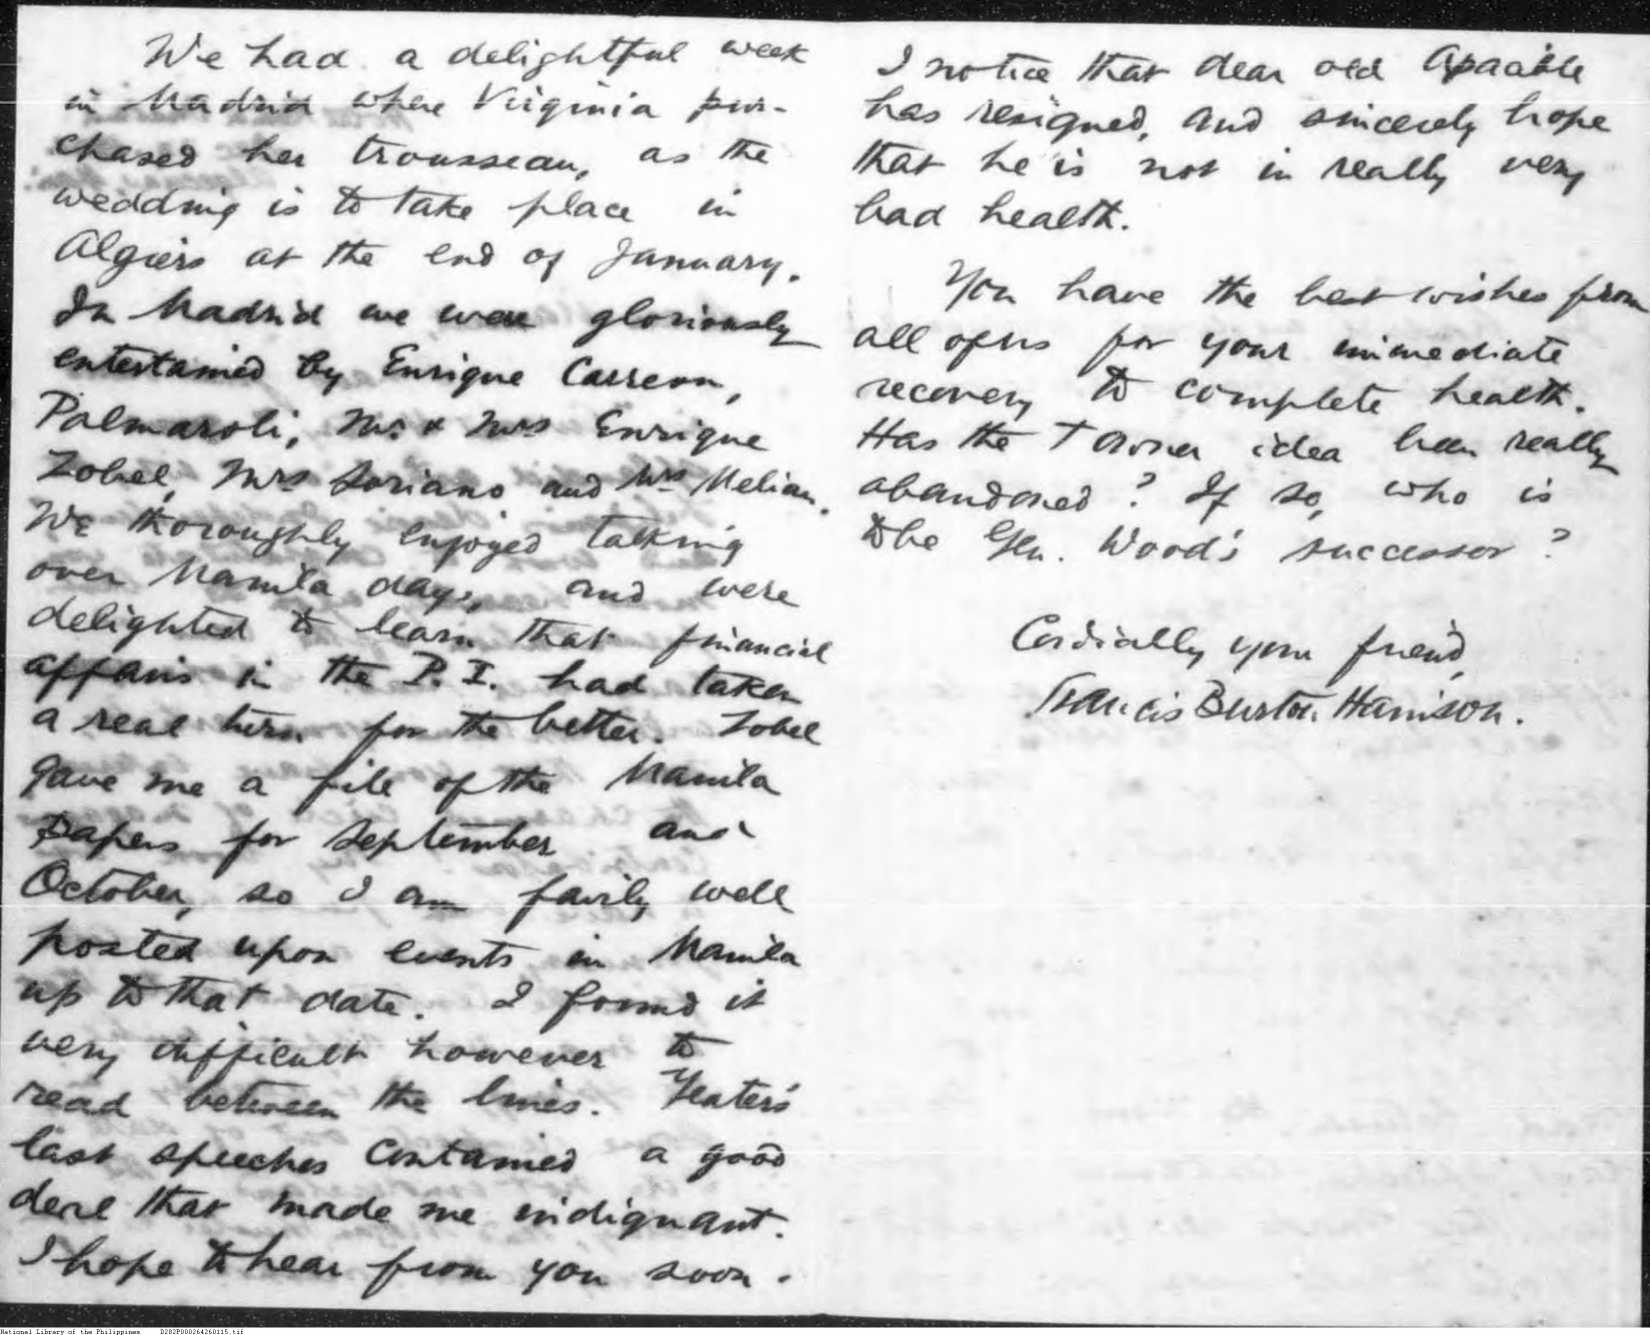 We had a delightful week
in Madrid where Virginia pur-
chased her trousseau, as the
wedding is to take place in
Algiers at the end of January.
In Madrid we were gloriously
entertained by Enrique Carreon,
Palmaroli, Mr. & Mrs Enrique
Zobel, Mrs Soriano and Mrs Melian.
We thoroughly enjoyed talking
over Manila days, and were
delighted to learn that financial
affairs in the P. I. had taken
a real turn for the better. Zobel
gave me a file of the Manila
papers for September and
October, so I am fairly well
posted upon events in Manila
up to that date. I found it
very difficult however to
read between the lines. Yeater's
last speeches contained a good
deal that made me indignant.
I hope to hear from you soon.
I notice that dear old Apacible
has resigned, and sincerely hope
that he is not in really very
bad health.
You have the best wishes from
all of us for your immediate
recovery to complete health.
Has the Towner idea been really
abandoned? If so, who is
to be Gen. Wood's successor?
Cordially your friend,
Francis Burton Harrison.
National Library of the Philippines D282P000264260115.tif